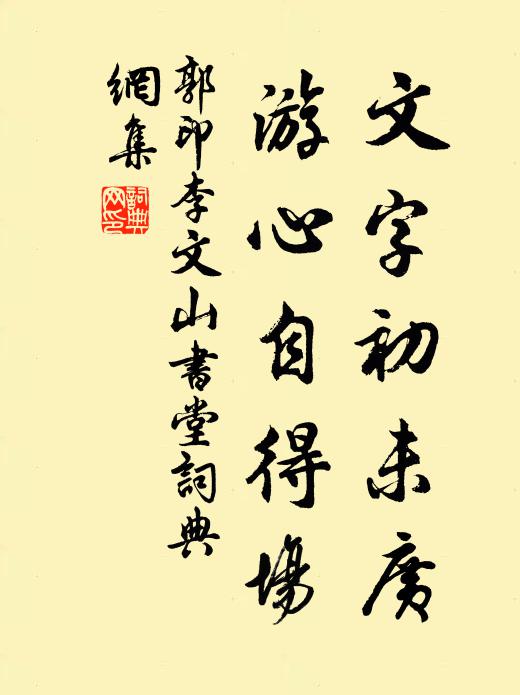 文字初未廣
游心自得場
郭印李文山書堂詞典
網集
詞典網印